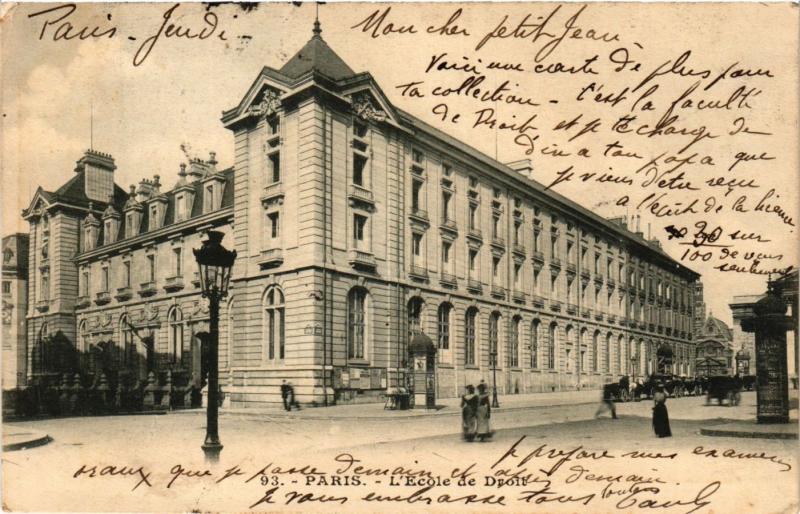 Paris, Jeudi.
Mon cher petit Jean,
Voici une carte de plus pour
ta collection - c'est la faculté
de Droit et je te charge de
dire à ton papa que
je viens d'être reçu
à l'écrit de la licence
20 sur
100 de reçus
seulement
Je prépare mes examens
oraux que je passe demain et après demain.
93. - PARIS. - L'École de Droit
Je vous embrasse tous
Paul